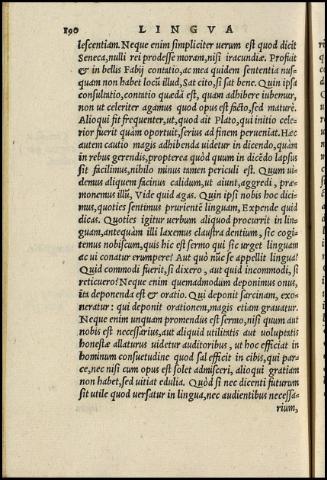 190 LINGVA
lescentiam. Neque enim simpliciter uerum est quod dicit
Seneca, nulli rei prodesse moram, nisi iracundiæ. Profuit
& in bellis Fabij contatio, ac mea quidem sententia nus-
quam non habet locū illud, Sat cito, si sat bene. Quin ipsa
consultatio, contatio quædā est, quam adhibere iubemur,
non ut celeriter agamus quod opus est facto, sed maturè.
Alioqui fit frequenter, ut, quod ait Plato, qui initio cele-
rior fuerit quàm oportuit, serius ad finem perueniat. Hæc
autem cautio magis adhibenda uidetur in dicendo, quàm
in rebus gerendis, propterea quòd quum in dicēdo lapsus
sit facilimus, nihilo minus tamen periculi est. Quum ui-
demus aliquem facinus calidum, ut aiunt, aggredi, præ-
monemus illū, Vide quid agas. Quin ipsi nobis hoc dici-
mus, quoties sentimus prurientē linguam, Expende quid
dicas. Quoties igitur uerbum aliquod procurrit in lin-
guam, antequàm illi laxemus claustra dentium, sic cogi-
temus nobiscum, quis hic est sermo qui sic urget linguam
ac ui conatur erumpere? Aut quò nūc se appellit lingua?
Quid commodi fuerit, si dixero, aut quid incommodi, si
reticuero? Neque enim quemadmodum deponimus onus,
ita deponenda est & oratio. Qui deponit sarcinam, exo-
neratur: qui deponit orationem, magis etiam grauatur.
Neque enim unquam promendus est sermo, nisi quum aut
nobis est necessarius, aut aliquid utilitatis aut uoluptatis
honestæ allaturus uidetur auditoribus, ut hoc efficiat in
hominum consuetudine quod sal efficit in cibis, qui par-
ce, nec nisi cum opus est solet admisceri, alioqui gratiam
non habet, sed uitiat edulia. Quòd si nec dicenti futurum
sit utile quod uersatur in lingua, nec audientibus necessa-
rium,